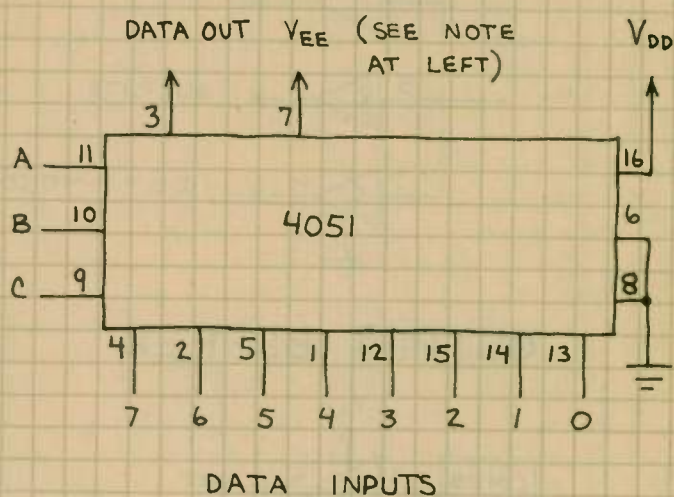 DATA OUT VEE (SEE NOTE VDD
AT LEFT)
3 7
A 11 16
B 10 4051 6
C 9 8
4 2 5 1 12 15 14 13
7 6 5 4 3 2 1 0
DATA INPUTS